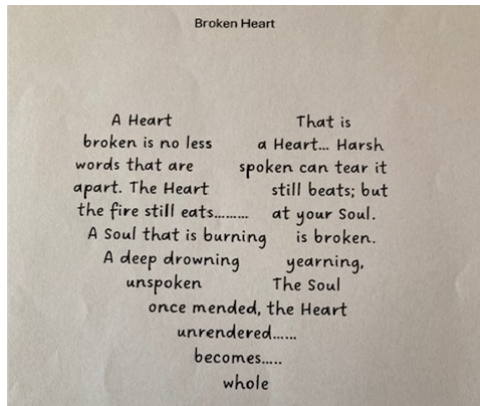 Broken Heart
A Heart That is
broken is no less a Heart... Harsh
words that are spoken can tear it
apart. The Heart still beats; but
the fire still eats......... at your Soul.
A Soul that is burning is broken.
A deep drowning yearning,
unspoken The Soul
once mended, the Heart
unrendered......
becomes.....
whole